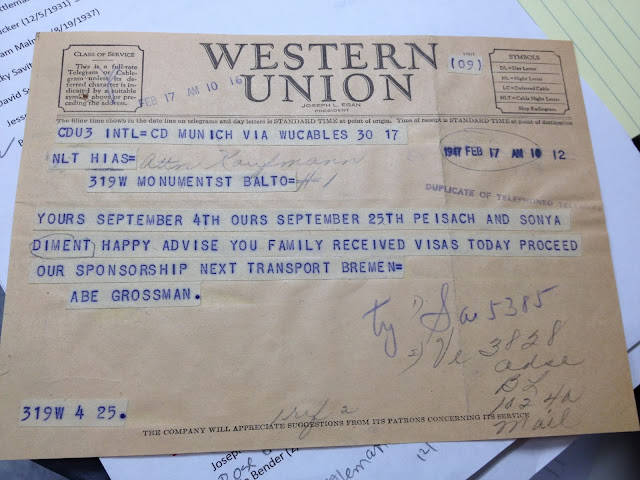 cker (12/5/1931)
am Maln (8/19/1937)
ky Savit
David S
Jess
CLASS OF SERVICE
This is a full-rate
Telegram or Cable-
gram unless its de-
ferred character is
indicated by a suitable
symbol above or pre-
ceding the address.
WESTERN
UNION
JOSEPH L. EGAN
PRESIDENT
(09)
SYMBOLS
DL=Day Letter
NL=Night Letter
LC=Deferred Cable
NLT=Cable Night Letter
Ship Radiogram
FEB 17 AM 10 16
The filing time shown in the date line on telegrams and day letters is STANDARD TIME at point of origin. Time of receipt is STANDARD TIME at point of destination
CDU3 INTL=CD MUNICH VIA WUCABLES 30 17
1947 FEB 17 AM 10 12
NLT HIAS= Attn Kaufmann
319W MONUMENTST BALTO= #1
DUPLICATE OF TELEPHONED TELE
YOURS SEPTEMBER 4TH OURS SEPTEMBER 25TH PEISACH AND SONYA
DIMENT HAPPY ADVISE YOU FAMILY RECEIVED VISAS TODAY PROCEED
OUR SPONSORSHIP NEXT TRANSPORT BREMEN=
ABE GROSSMAN.
ty 1) Sa 5385
2) Ve 3828
BL
Mail
319W 4 25.
THE COMPANY WILL APPRECIATE SUGGESTIONS FROM ITS PATRONS CONCERNING ITS SERVICE
Joseph
Bender (2